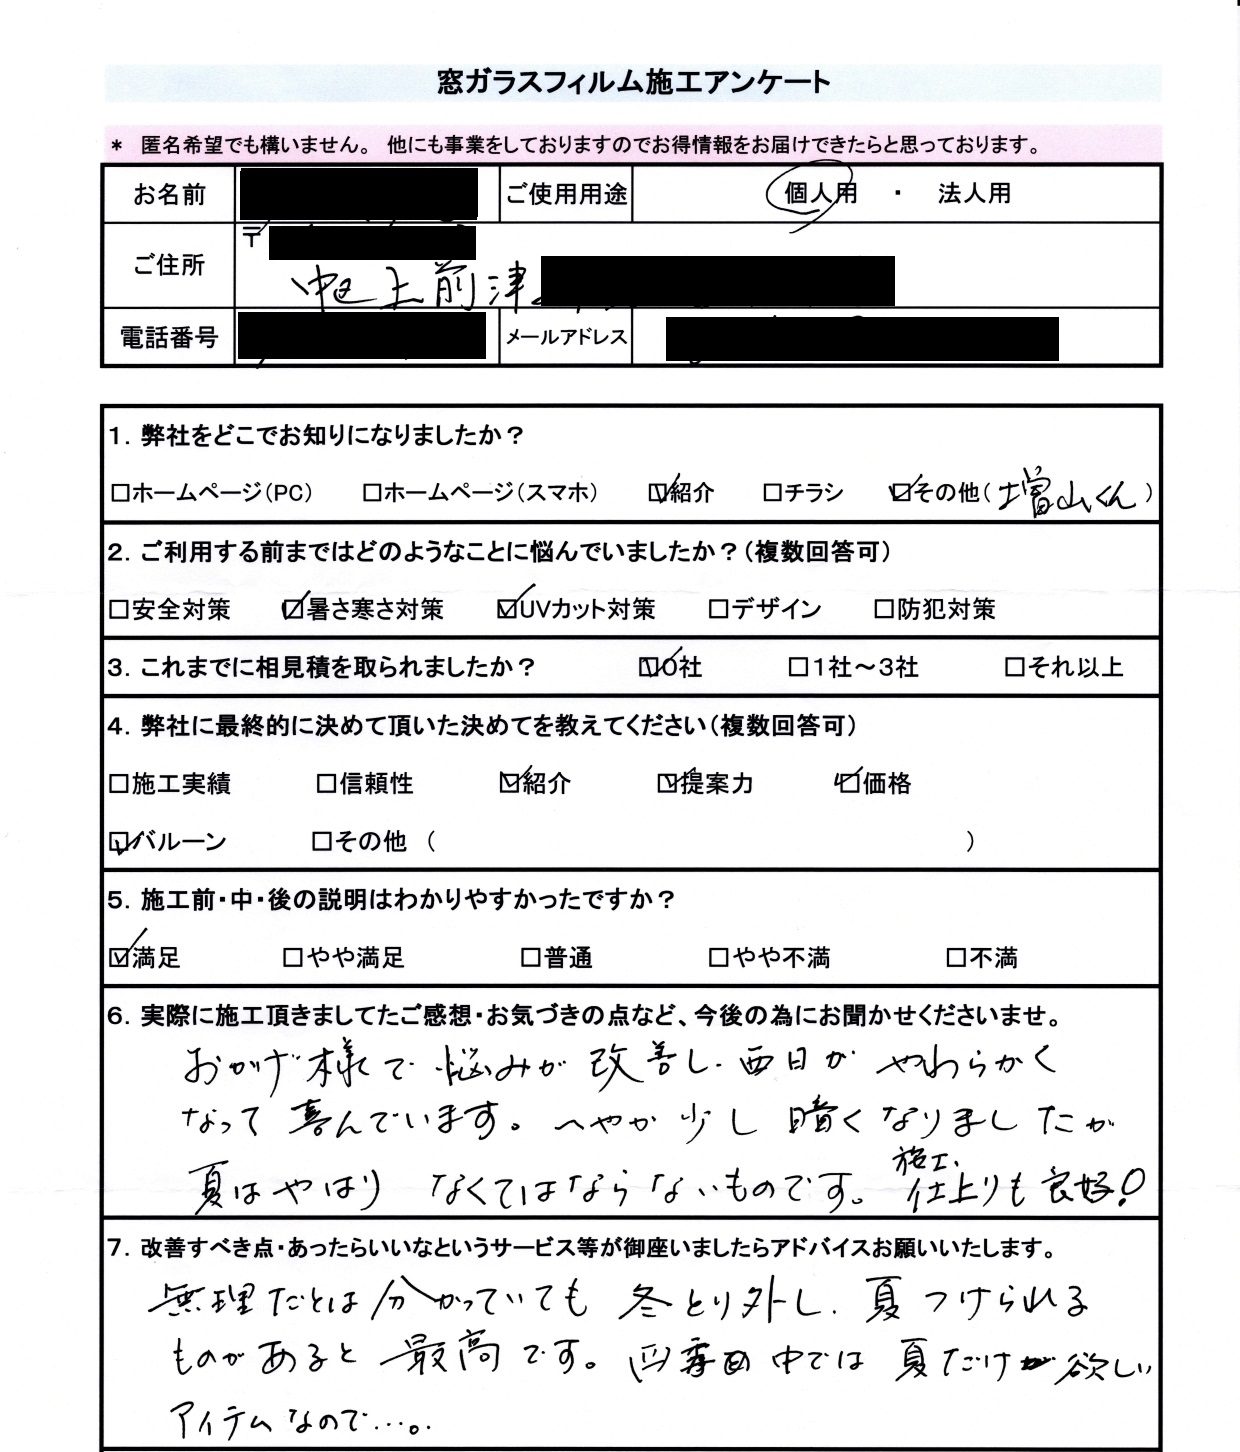 窓ガラスフィルム施工アンケート
* 匿名希望でも構いません。 他にも事業をしておりますのでお得情報をお届けできたらと思っております。
お名前 ご使用用途 個人用 ・ 法人用
ご住所 〒
中区上前津
電話番号 メールアドレス
1. 弊社をどこでお知りになりましたか？
□ホームページ(PC) □ホームページ(スマホ) ☑紹介 □チラシ ☑その他(増山くん)
2. ご利用する前まではどのようなことに悩んでいましたか？(複数回答可)
□安全対策 ☑暑さ寒さ対策 ☑UVカット対策 □デザイン □防犯対策
3. これまでに相見積を取られましたか？ ☑0社 □1社～3社 □それ以上
4. 弊社に最終的に決めて頂いた決めてを教えてください(複数回答可)
□施工実績 □信頼性 ☑紹介 ☑提案力 ☑価格
☑バルーン □その他 ( )
5. 施工前・中・後の説明はわかりやすかったですか？
☑満足 □やや満足 □普通 □やや不満 □不満
6. 実際に施工頂きましてたご感想・お気づきの点など、今後の為にお聞かせくださいませ。
おかげ様で悩みが改善し、西日がやわらかく
なって喜んでいます。へやが少し暗くなりましたが
夏はやはりなくてはならないものです。施工、仕上りも良好！
7. 改善すべき点・あったらいいなというサービス等が御座いましたらアドバイスお願いいたします。
無理だとは分かっていても冬とり外し、夏つけられる
ものがあると最高です。四季の中では夏だけが欲しい
アイテムなので…。